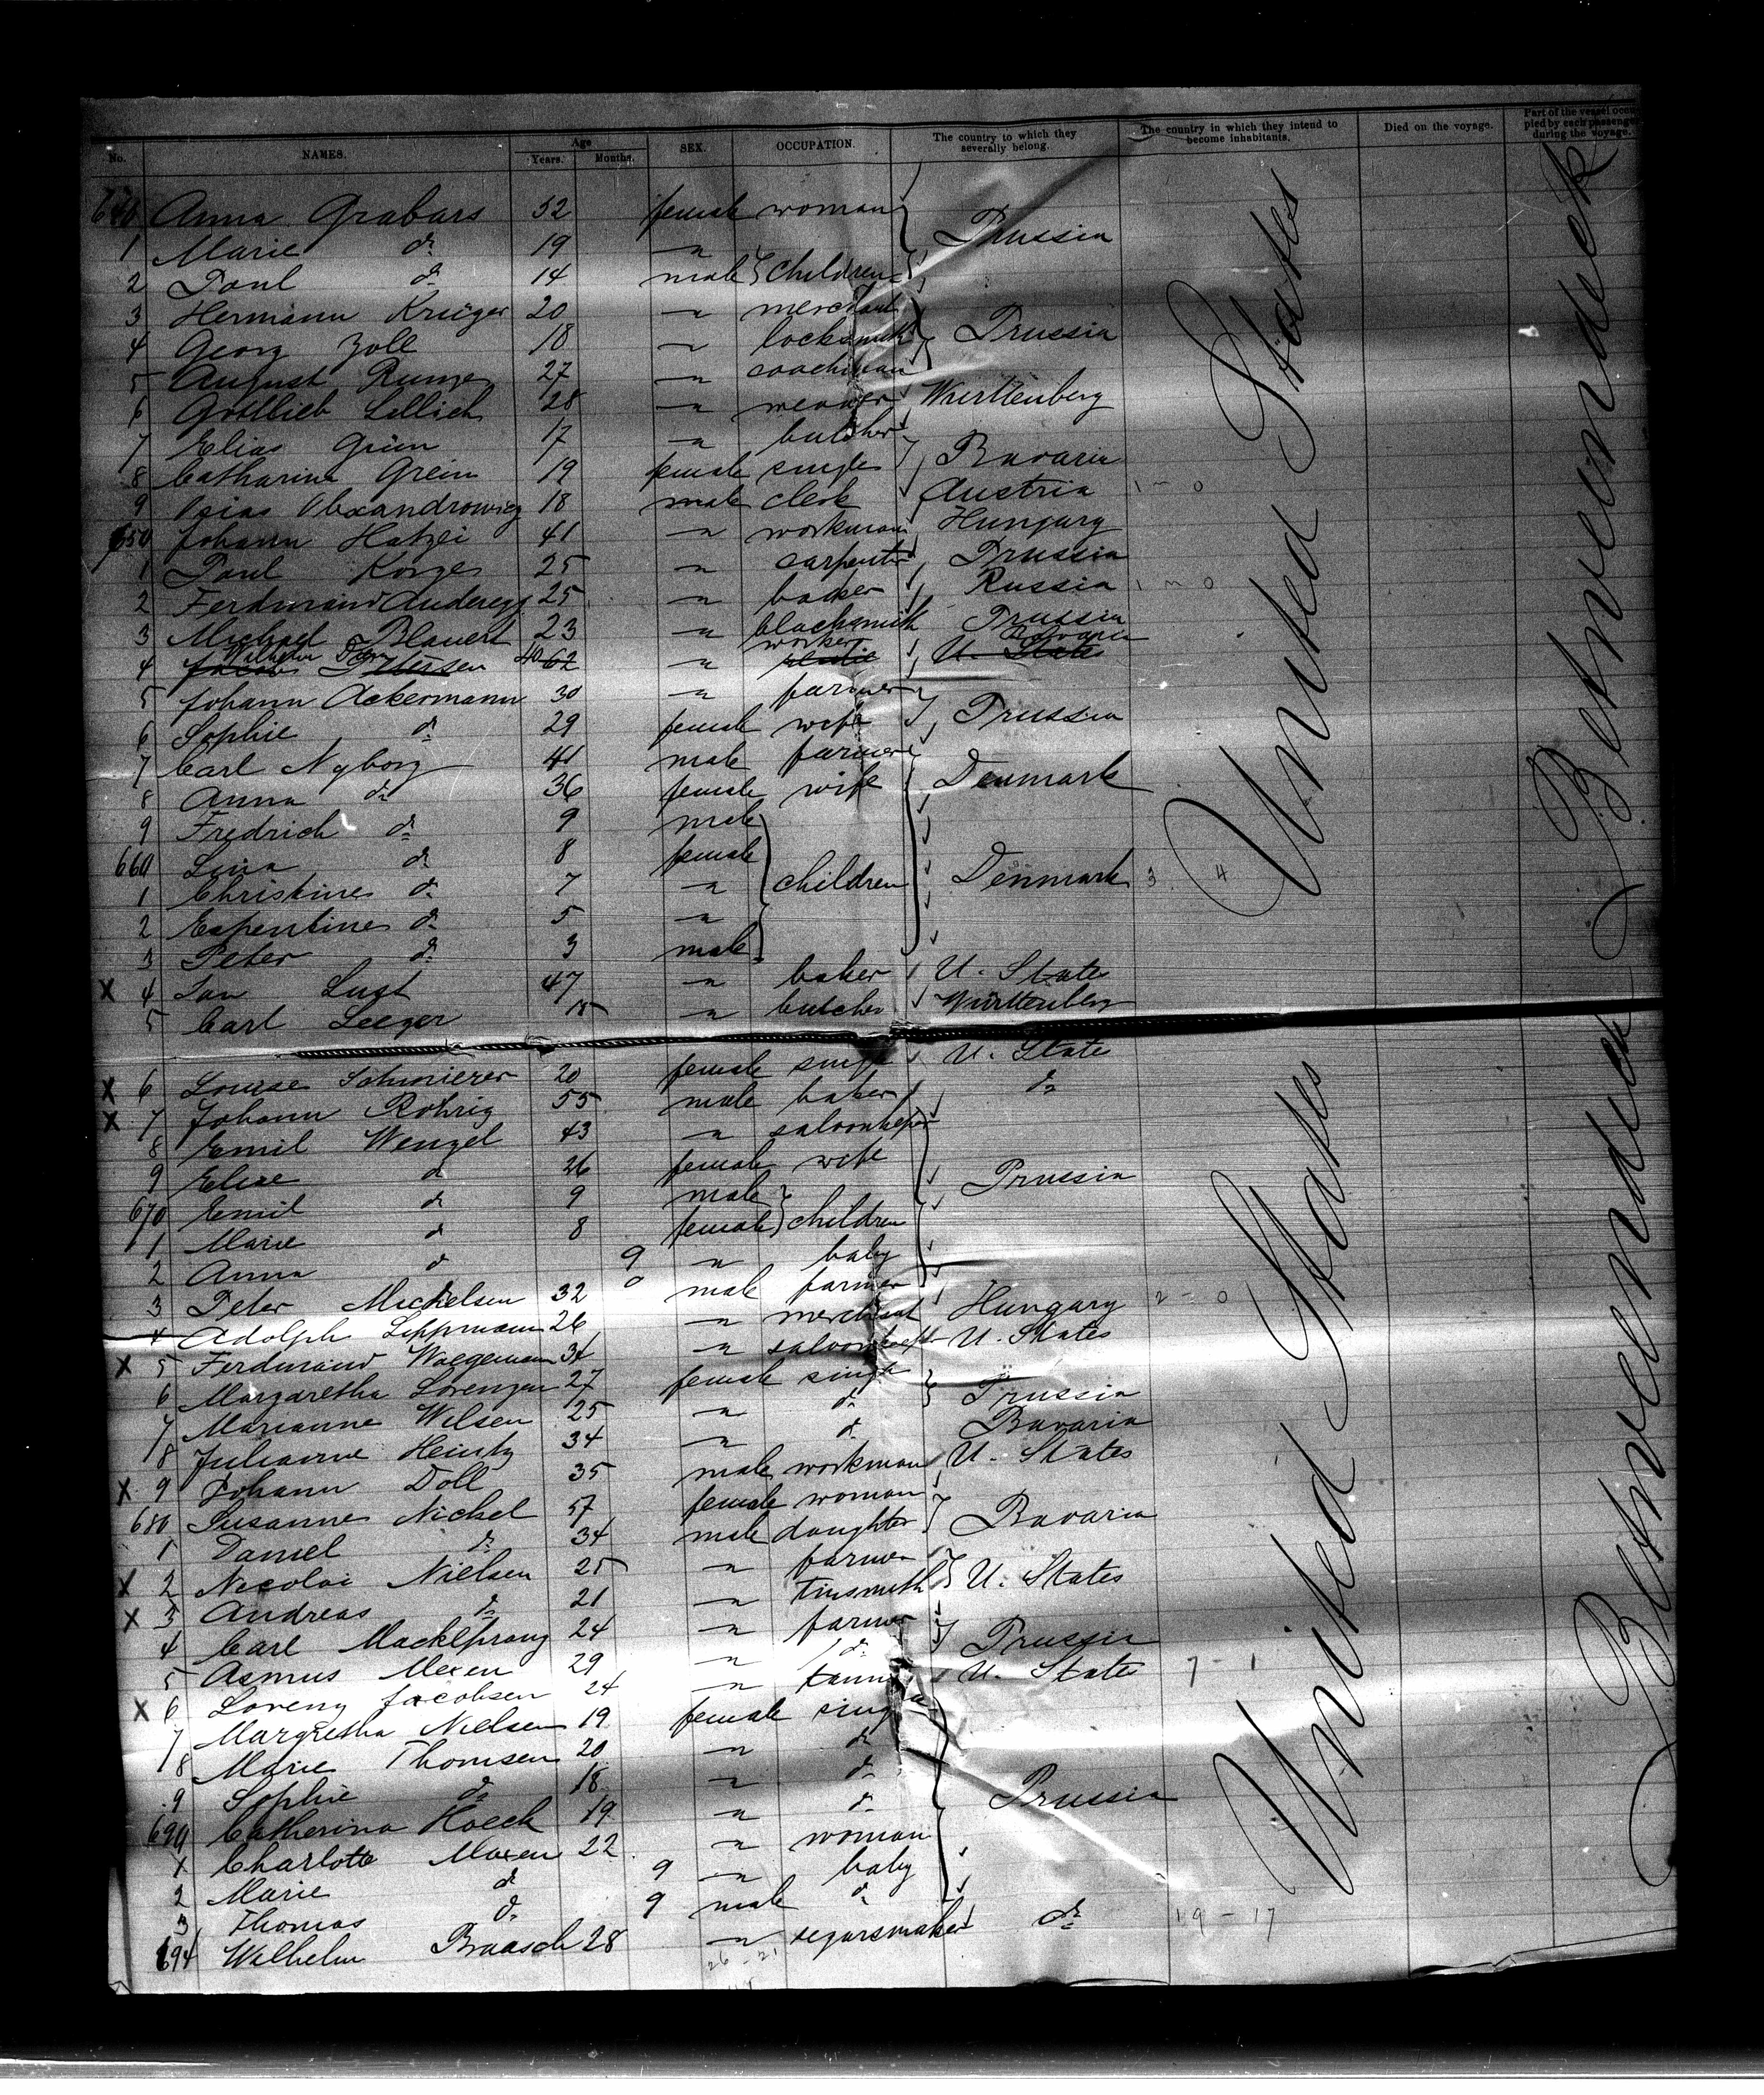 No. NAMES. Age Years. Months. SEX. OCCUPATION. The country to which they severally belong. The country in which they intend to become inhabitants. Died on the voyage. Part of the vessel occupied by each passenger during the voyage.
640 Anna Grabars 52 female woman
1 Marie do 19 " Prussia
2 Paul do 14 male children
3 Hermann Krüger 20 " merchant
4 Georg Zoll 18 " locksmith Prussia
5 August Runge 27 " coachman
6 Gottlieb Lellich 28 " weaver Württenberg
7 Elias Grün 17 " butcher
8 Catharina Grein 19 female single Bavaria
9 Osias Alexandrowicz 18 male clerk Austria 1 - 0
650 Johann Hatzei 41 " workman Hungary
1 Paul Korge 25 " carpenter Prussia
2 Ferdinand Anderegg 25 " baker Russia 1 - 0
3 Michael Blauert 23 " blacksmith Prussia
4 Wilhelm 40 worker Bavaria
Jacob Petersen 62 " U. States
5 Johann Ackermann 30 " farmer
6 Sophie do 29 female wife Prussia
7 Carl Nyborg 41 male farmer
8 Anna do 36 female wife Denmark
9 Fredrich do 9 male
660 Lina do 8 female
1 Christine do 7 " children Denmark 3 4
2 Espentine do 5 "
3 Peter do 3 male
X 4 Jan Lust 47 " baker U. State
5 Carl Seeger 18 " butcher Württenberg
X 6 Louise Schmierer 20 female single U. State
X 7 Johann Rohrig 55 male baker do
8 Emil Wenzel 43 " saloonkeper
9 Elise do 26 female wife
670 Emil do 9 male Prussia
1 Marie do 8 female children
2 Anna do 9 " baby
3 Peter Michelsen 32 male farmer
4 Adolph Lippmann 26 " merchant Hungary 2 - 0
X 5 Ferdinand Waegemann 34 " U. States
6 Margaretha Lorenzen 27 female single
7 Marianne Wilsen 25 " do Prussia
8 Julianne Heintz 34 " do Bavaria
X 9 Johann Doll 35 male workman U. States
680 Susanne Nickel 57 female woman
1 Daniel do 34 male daughter Bavaria
X 2 Nicolai Nielsen 25 " farmer
X 3 Andreas do 21 " tinsmith U. States
4 Carl Mackeprang 24 " farmer
5 Asmus Mexen 29 " do Prussia
X 6 Lorenz Jacobsen 24 " U. State 7 - 1
7 Margretha Nielsen 19 female single
8 Marie Thomsen 20 " do
9 Sophie do 18 " do
690 Catherina Hoeck 19 " do Prussia
1 Charlotte Moxen 22 " woman
2 Marie do 9 " baby
3 Thomas do 9 male do
694 Wilhelm Braasch 28 " segarsmaker do 19 - 17
26 - 21
United States
United States
Betweendeck
Betweendeck